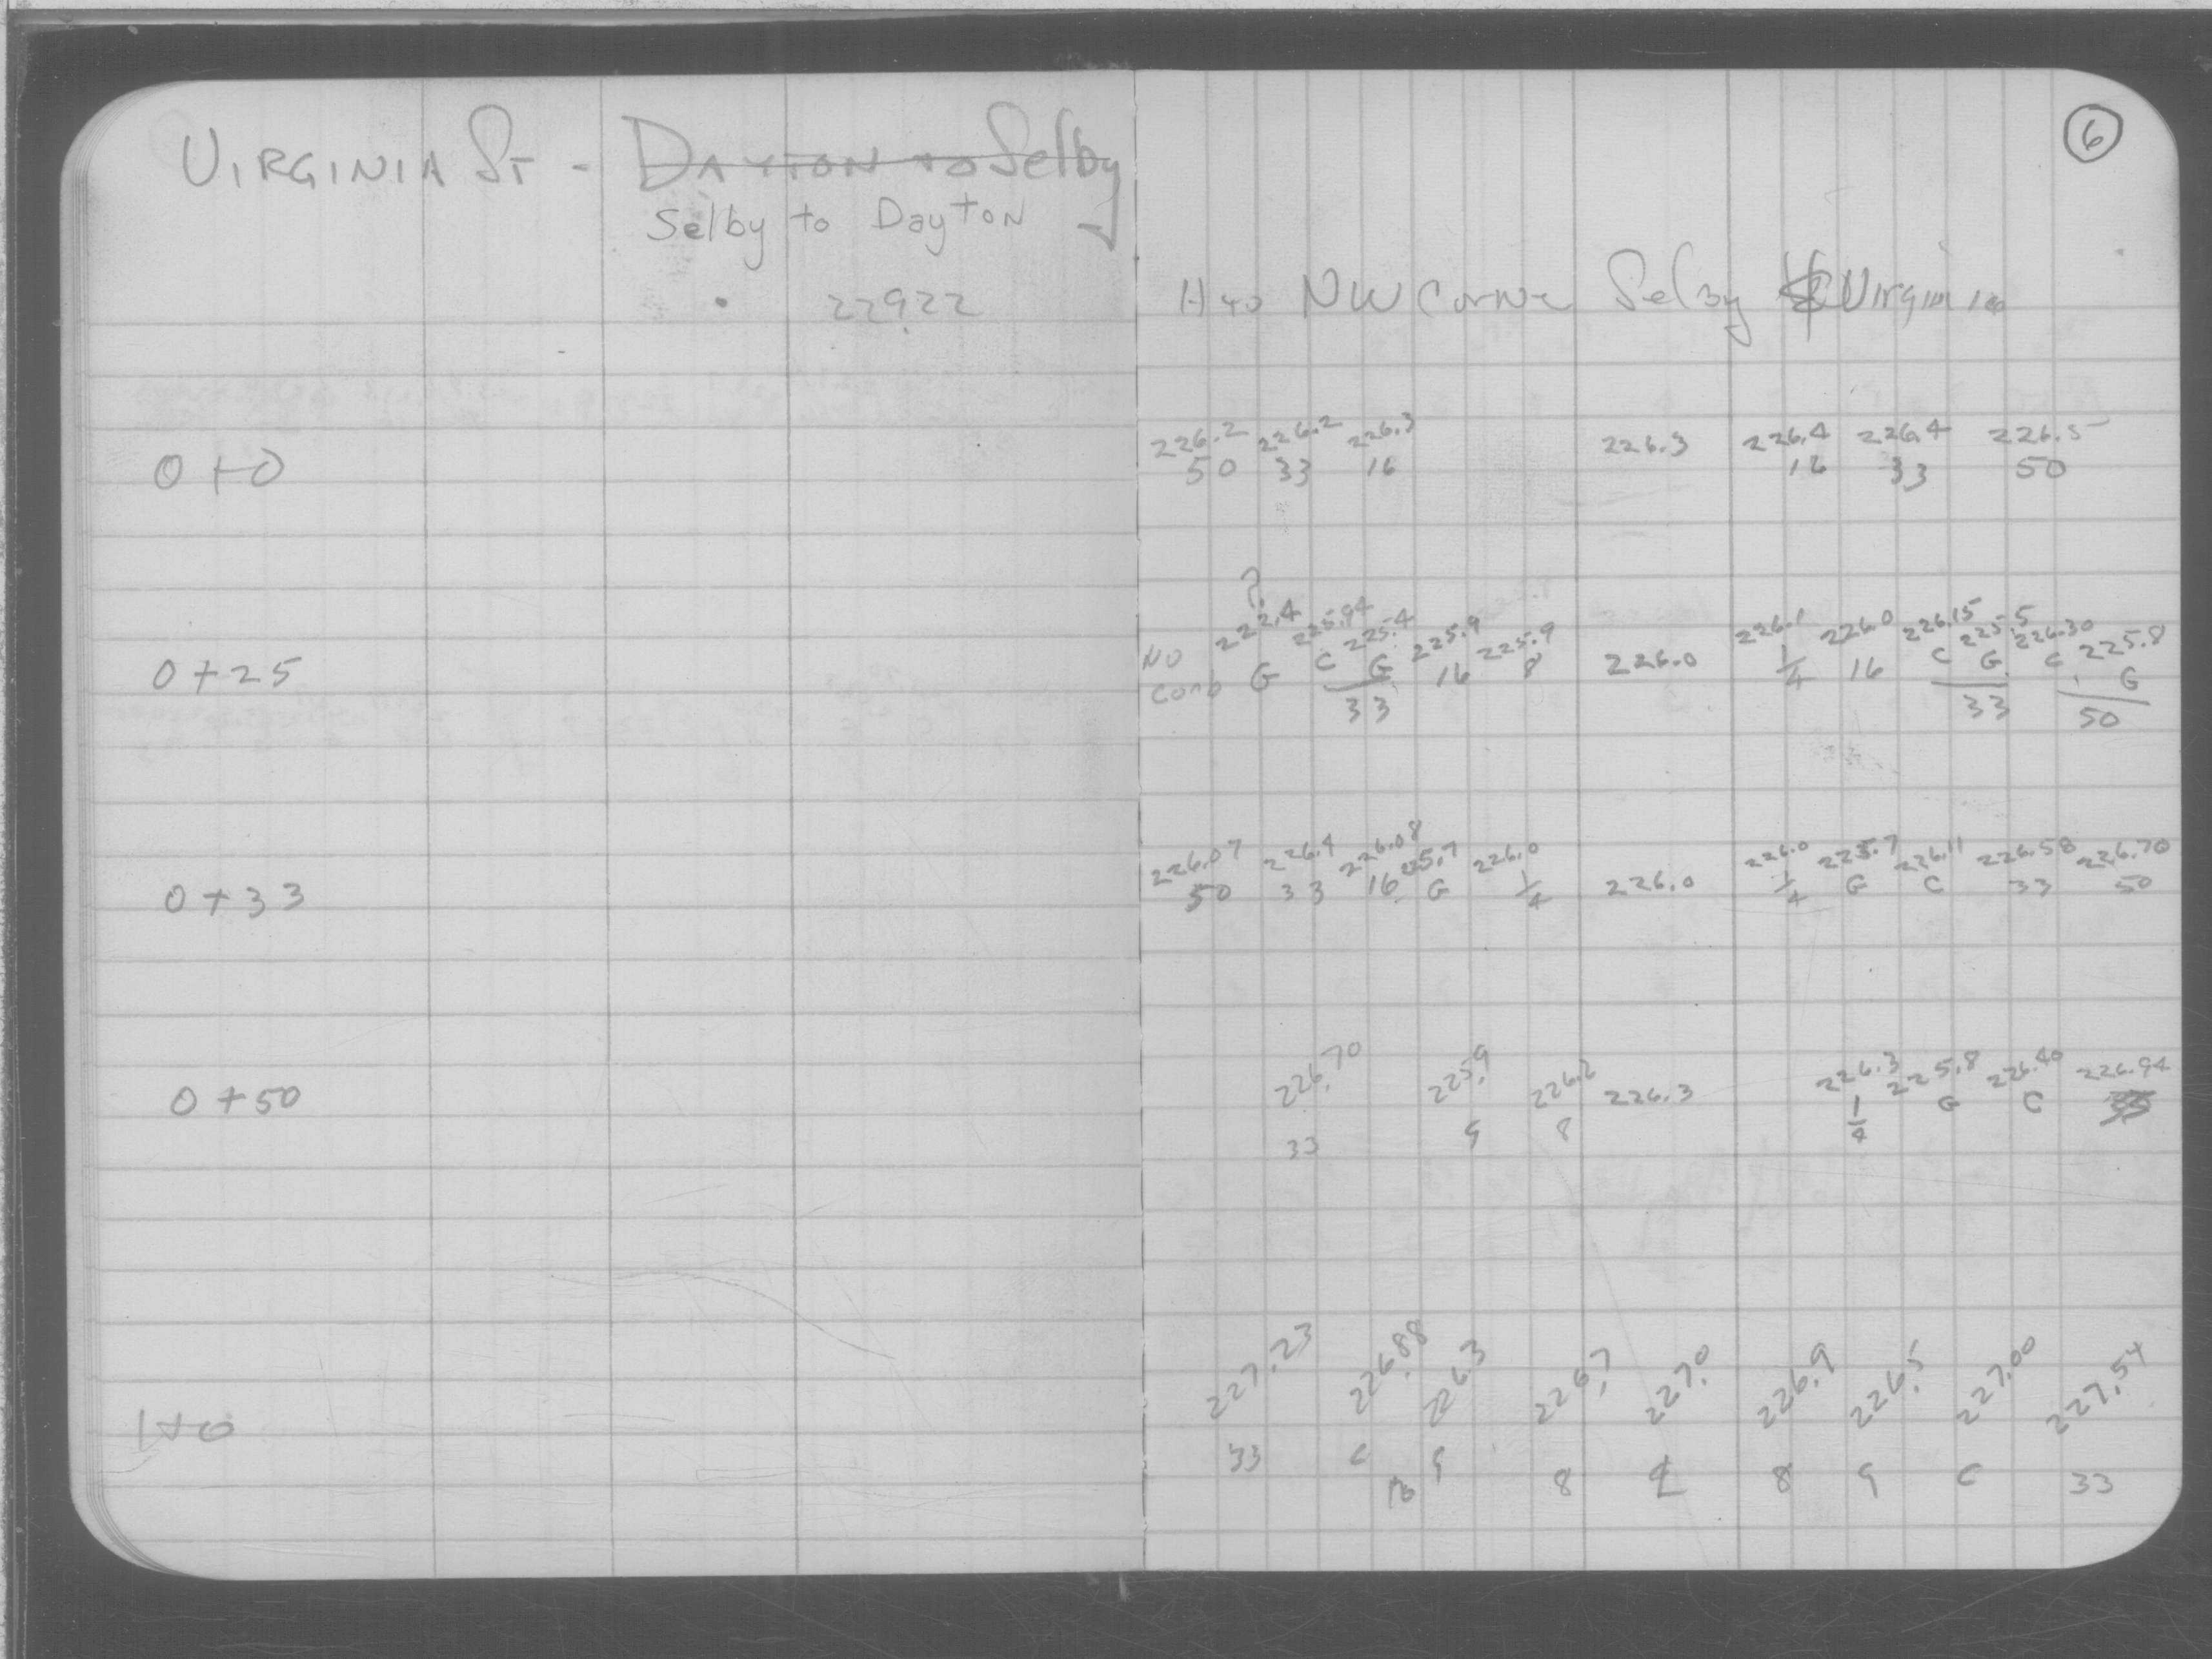 6
VIRGINIA ST - DAYTON to Selby
Selby to Dayton
229.22
NW Corner Selby & Virginia
226.2 226.2 226.3 226.3 226.4 226.4 226.5
0+0
50 33 16 16 33 50
?
222.4 225.94 225.4 225.9 225.9 226.1 226.0 226.15 225.5 226.30 225.8
0+25 NO G C G 16 8 226.0 1/4 16 C G C G
33 33 50
226.07 226.4 226.08 225.7 226.0 226.0 225.7 226.11 226.58 226.70
0+33 50 33 16 G 1/4 226.0 1/4 G C 33 50
226.70 225.9 226.2 226.3 226.3 225.8 226.40 226.94
0+50 1/4 G C
33 G 8
227.23 226.88 226.3 226.7 227.0 226.9 226.5 227.00 227.54
1+0
33 C G 8 ℄ 8 G C 33